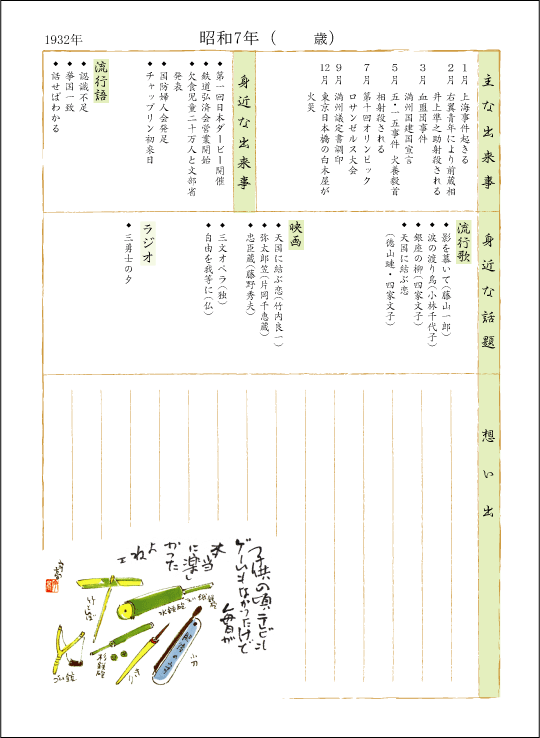 1932年
昭和7年（　　　歳）
主な出来事
1月　上海事件起きる
2月　右翼青年により前蔵相
井上準之助射殺される
3月　血盟団事件
満州国建国宣言
5月　五・一五事件　犬養毅首
相射殺される
7月　第十回オリンピック
ロサンゼルス大会
9月　満州議定書調印
12月　東京日本橋の白木屋が
火災
身近な出来事
◆ 第一回日本ダービー開催
◆ 鉄道弘済会営業開始
◆ 欠食児童二十万人と文部省
発表
◆ 国防婦人会発足
◆ チャップリン初来日
流行語
◆ 認識不足
◆ 挙国一致
◆ 話せばわかる
身近な話題
流行歌
◆ 影を慕いて（藤山一郎）
◆ 涙の渡り鳥（小林千代子）
◆ 銀座の柳（四家文子）
◆ 天国に結ぶ恋
（徳山璉・四家文子）
映画
◆ 天国に結ぶ恋（竹内良一）
◆ 弥太郎笠（片岡千恵蔵）
◆ 忠臣蔵（藤野秀夫）
◆ 三文オペラ（独）
◆ 自由を我等に（仏）
ラジオ
◆ 三勇士の夕
想い出
子供の頃、テレビも
ゲームもなかったけど
毎日が
本当
に楽し
かった
よね
竹とんぼ
水鉄砲
紙鉄砲
杉鉄砲
ゴム銃
きり
小刀
肥後の守